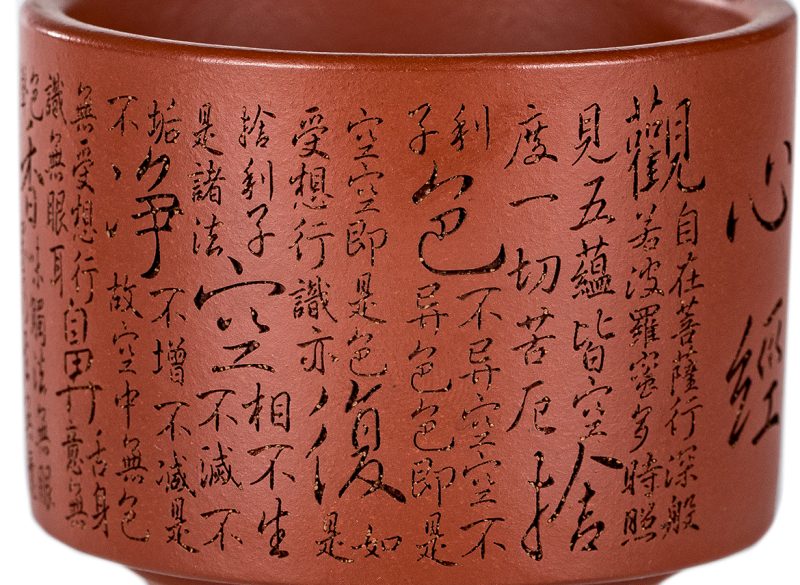 心經
觀自在菩薩行深般
若波羅蜜多時照
見五蘊皆空
度一切苦厄捨
利子色不异空空不
异色色即是
空空即是色
受想行識亦復如
是
捨利子
是諸法空相不生
不滅不
垢不净不增不减是
故空中無色
無受想行
識無眼耳鼻舌身
意無
色
香味觸法無眼